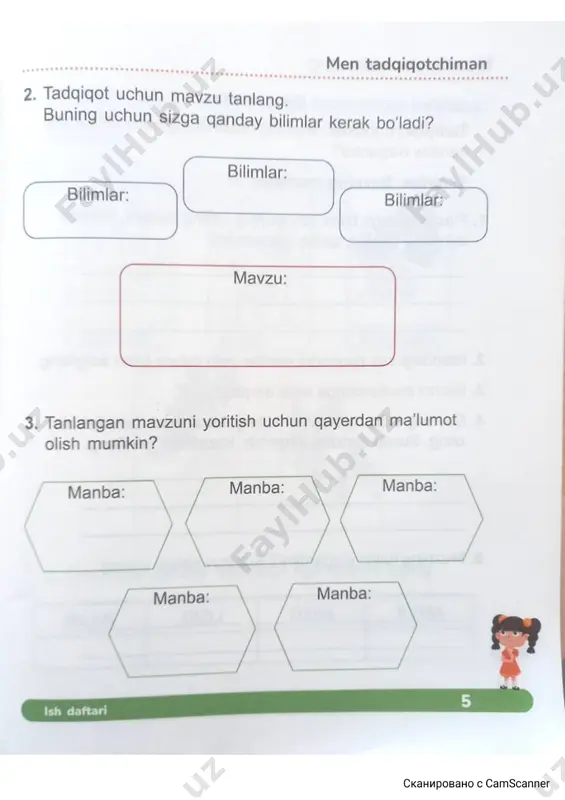 Men tadqiqotchiman
2. Tadqiqot uchun mavzu tanlang.
Buning uchun sizga qanday bilimlar kerak bo'ladi?
Bilimlar:
Bilimlar:
Bilimlar:
Mavzu:
3. Tanlangan mavzuni yoritish uchun qayerdan ma'lumot
olish mumkin?
Manba:
Manba:
Manba:
Manba:
Manba:
Ish daftari
5
FaylHub.uz
FaylHub.uz
FaylHub.uz
.uz
uz
uz
Сканировано с CamScanner